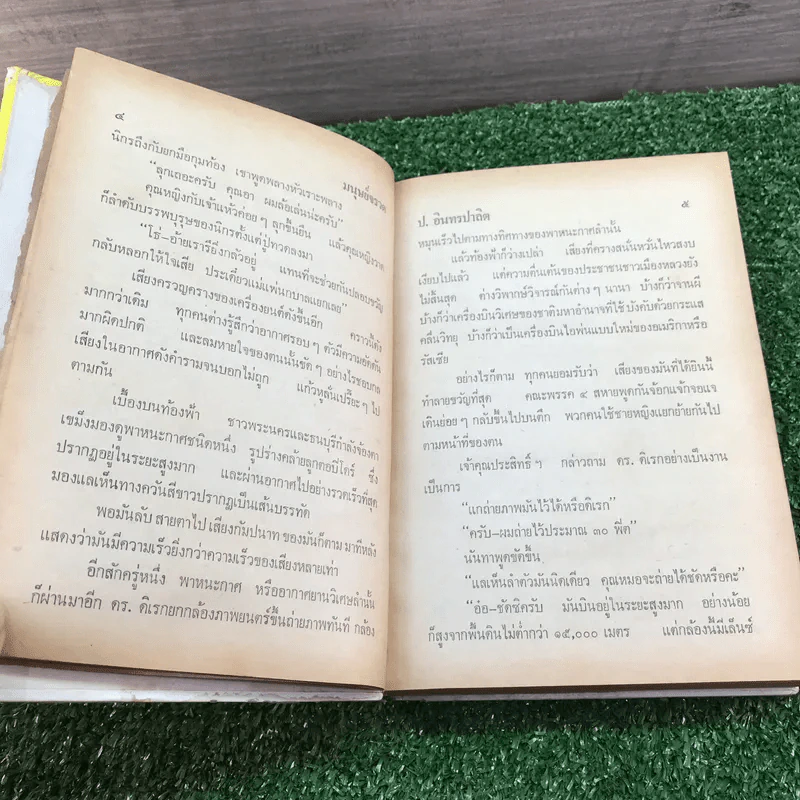 ๔
มนุษย์จรวด
นิกรถึงกับยกมือกุมท้อง เขาพูดพลางหัวเราะพลาง
“ลุกเถอะครับ คุณอา ผมล้อเล่นน่ะครับ”
คุณหญิงกับเจ้าแห้วค่อย ๆ ลุกขึ้นยืน แล้วคุณหญิงวาด
ก็ลำดับบรรพบุรุษของนิกรตั้งแต่ปู่ทวดลงมา
“โธ่–อ้ายเรารึยิ่งกลัวอยู่ แทนที่จะช่วยกันปลอบขวัญ
กลับหลอกให้ใจเสีย ประเดี๋ยวแม่แพ่นกบาลแยกเลย”
เสียงครวญครางของเครื่องยนต์ดังขึ้นอีก คราวนี้ดัง
มากกว่าเดิม ทุกคนต่างรู้สึกว่าอากาศรอบ ๆ ตัวมีความอัดดัน
มากผิดปกติ และลมหายใจของตนนั้นขัด ๆ อย่างไรชอบกล
เสียงในอากาศดังคำรามจนบอกไม่ถูก แก้วหูลั่นเปรี๊ยะ ๆ ไป
ตามกัน
เบื้องบนท้องฟ้า ชาวพระนครและธนบุรีกำลังจ้องตา
เขม็งมองดูพาหนะกาศชนิดหนึ่ง รูปร่างคล้ายลูกตอปิโดร์ ซึ่ง
ปรากฎอยู่ในระยะสูงมาก และผ่านอากาศไปอย่างรวดเร็วที่สุด
มองแลเห็นทางควันสีขาวปรากฎเป็นเส้นบรรทัด
พอมันลับ สายตาไป เสียงกัมปนาท ของมันก็ตาม มาทีหลัง
แสดงว่ามันมีความเร็วยิ่งกว่าความเร็วของเสียงหลายเท่า
อีกสักครู่หนึ่ง พาหนะกาศ หรืออากาศยานวิเศษลำนั้น
ก็ผ่านมาอีก ดร. ดิเรกยกกล้องภาพยนตร์ขึ้นถ่ายภาพทันที กล้อง
ป. อินทรปาลิต
๕
หมุนเร็วไปตามทางทิศทางของพาหนะกาศลำนั้น
แล้วท้องฟ้าก็ว่างเปล่า เสียงที่ครางสนั่นหวั่นไหวสงบ
เงียบไปแล้ว แต่ความตื่นเต้นของประชาชนชาวเมืองหลวงยัง
ไม่สิ้นสุด ต่างวิพากษ์วิจารณ์กันต่าง ๆ นานา บ้างก็ว่าจานผี
บ้างก็ว่าเครื่องบินวิเศษของชาติมหาอำนาจที่ใช้ บังคับด้วยกระแส
คลื่นวิทยุ บ้างก็ว่าเป็นเครื่องบินไอพ่นแบบใหม่ของอเมริกาหรือ
รัสเซีย
อย่างไรก็ตาม ทุกคนยอมรับว่า เสียงของมันที่ได้ยินนี้
ทำลายขวัญที่สุด คณะพรรค ๔ สหายพูดกันจ้อกแจ้กจอแจ
เดินย่อย ๆ กลับขึ้นไปบนตึก พวกคนใช้ชายหญิงแยกย้ายกันไป
ตามหน้าที่ของตน
เจ้าคุณประสิทธิ์ ฯ กล่าวถาม ดร. ดิเรกอย่างเป็นงาน
เป็นการ
“แกถ่ายภาพมันไว้ได้หรือดิเรก”
“ครับ–ผมถ่ายไว้ประมาณ ๓๐ ฟีต”
นันทาพูดขัดขึ้น
“แลเห็นลำตัวมันนิดเดียว คุณหมอจะถ่ายได้ชัดหรือคะ”
“อ๋อ–ชัดซิครับ มันบินอยู่ในระยะสูงมาก อย่างน้อย
ก็สูงจากพื้นดินไม่ต่ำกว่า ๑๕,๐๐๐ เมตร แต่กล้องนี้มีเล็นซ์